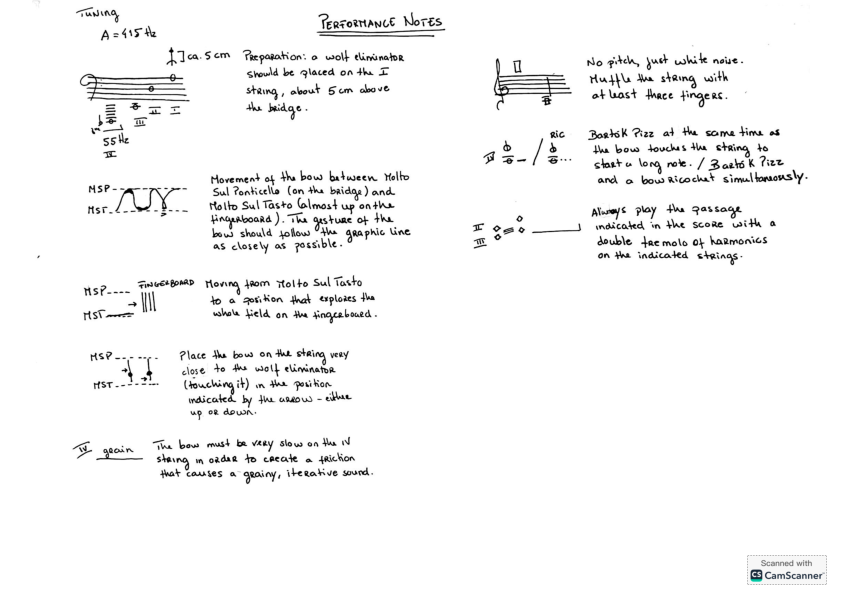 Tuning
A = 415 Hz
PERFORMANCE NOTES
ca. 5 cm
Preparation: a wolf eliminator
should be placed on the I
string, about 5 cm above
the bridge.
III II I
55 Hz
IV
MSP
MST
Movement of the bow between Molto
Sul Ponticello (on the bridge) and
Molto Sul Tasto (almost up on the
fingerboard). The gesture of the
bow should follow the graphic line
as closely as possible.
MSP
FINGERBOARD
MST
Moving from Molto Sul Tasto
to a position that explores the
whole field on the fingerboard.
MSP
MST
Place the bow on the string very
close to the wolf eliminator
(touching it) in the position
indicated by the arrow - either
up or down.
IV grain
The bow must be very slow on the IV
string in order to create a friction
that causes a grainy, iterative sound.
No pitch, just white noise.
Muffle the string with
at least three fingers.
IV
RIC
Bartók Pizz at the same time as
the bow touches the string to
start a long note. / Bartók Pizz
and a bow Ricochet simultaneously.
II
III
Always play the passage
indicated in the score with a
double tremolo of harmonics
on the indicated strings.
Scanned with
CS CamScanner